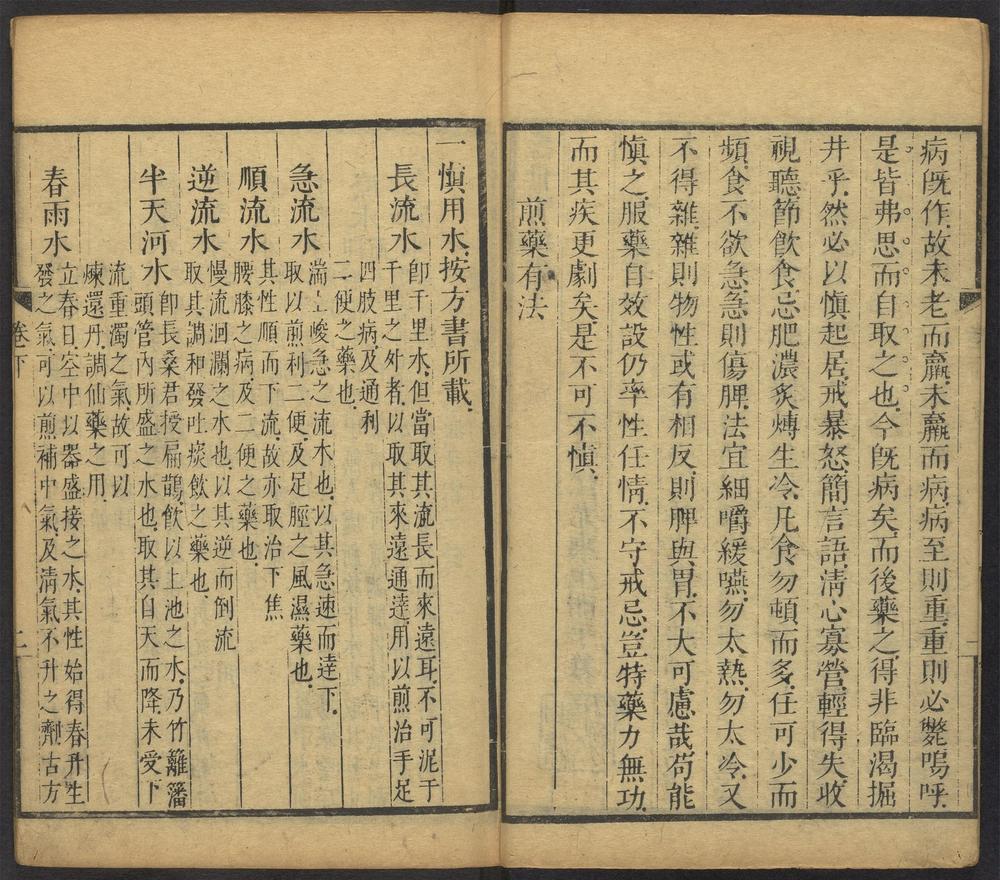 病既作.故未老而羸.未羸而病.病至則重.重則必斃.嗚呼.
是皆弗思而自取之也.今既病矣.而後藥之.得非臨渴掘
井乎.然必以慎起居.戒暴怒.簡言語.清心寡營.輕得失.收
視聽.節飲食.忌肥濃炙煿生冷.凡食勿頓而多.任可少而
頻.食不欲急.急則傷脾.法宜細嚼緩嚥.勿太熱.勿太冷.又
不得雜.雜則物性或有相反.則脾與胃.不大可慮哉.苟能
慎之.服藥自效.設仍率性任情.不守戒忌.豈特藥力無功.
而其疾更劇矣.是不可不慎.
煎藥有法
一慎用水.按方書所載.
長流水
即千里水.但當取其流長而來遠耳.不可泥于
千里之外者.以取其來遠通達.用以煎治手足
四肢病及通利
二便之藥也.
急流水
湍上峻急之流水也.以其急速而達下.
取以煎利二便.及足脛之風濕藥也.
順流水
其性順而下流.故亦取治下焦
腰膝之病及二便之藥也.
逆流水
慢流洄瀾之水也.以其逆而倒流
取其調和發吐痰飲之藥也
半天河水
即長桑君授扁鵲.飲以上池之水.乃竹籬藩
頭管內所盛之水也.取其自天而降.未受下
流重濁之氣.故可以
煉還丹.調仙藥之用.
春雨水
立春日.空中以器盛接之水.其性始得春升生
發之氣.可以煎補中氣.及清氣不升之劑.古方
卷下
二